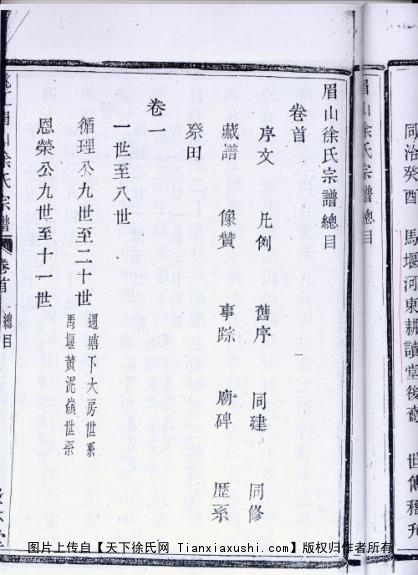 同治癸酉 馬堰河東耕讀堂後裔 世傳
眉山徐氏宗譜總目
眉山徐氏宗譜總目
卷首
序文 凡例 舊序 同建 同修
藏譜 像贊 事踪 廟碑 歷系
祭田
卷一
一世至八世
循理公九世至二十世 週塘下大房世系
馬堰黃泥嶺世系
恩榮公九世至十一世
眉山徐氏宗譜 卷首 總目
图片上传自【天下徐氏网 Tianxiaxushi.com】版权归作者所有